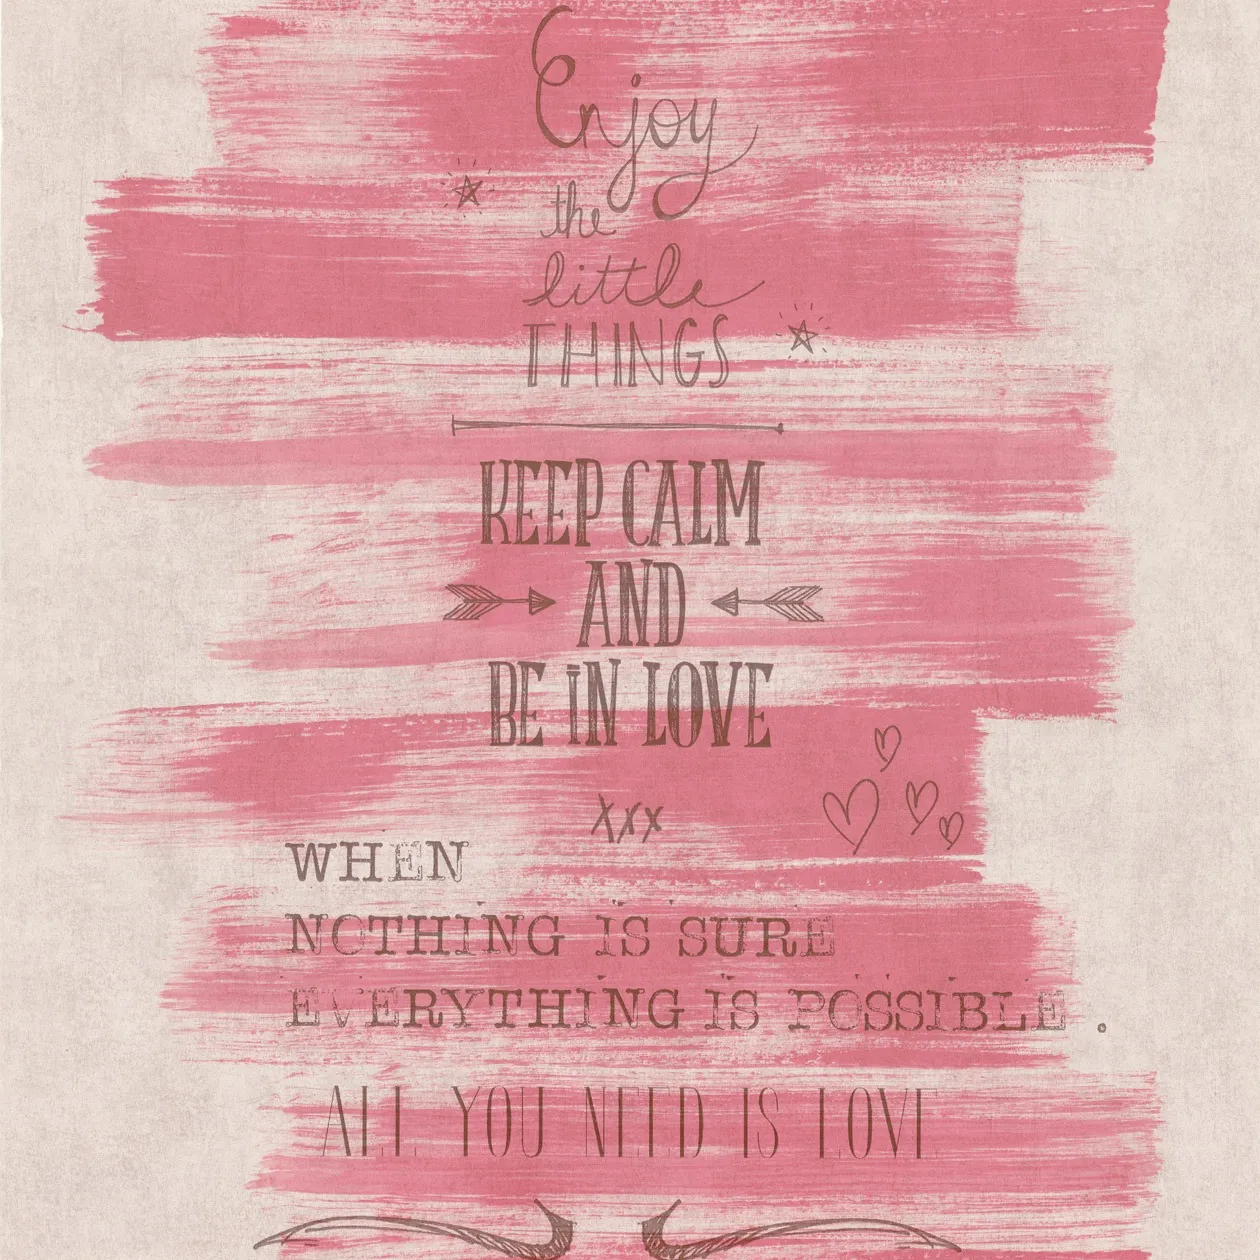 Enjoy
the
little
THINGS
KEEP CALM
AND
BE IN LOVE
xxx
WHEN
NOTHING IS SURE
EVERYTHING IS POSSIBLE .
ALL YOU NEED IS LOVE